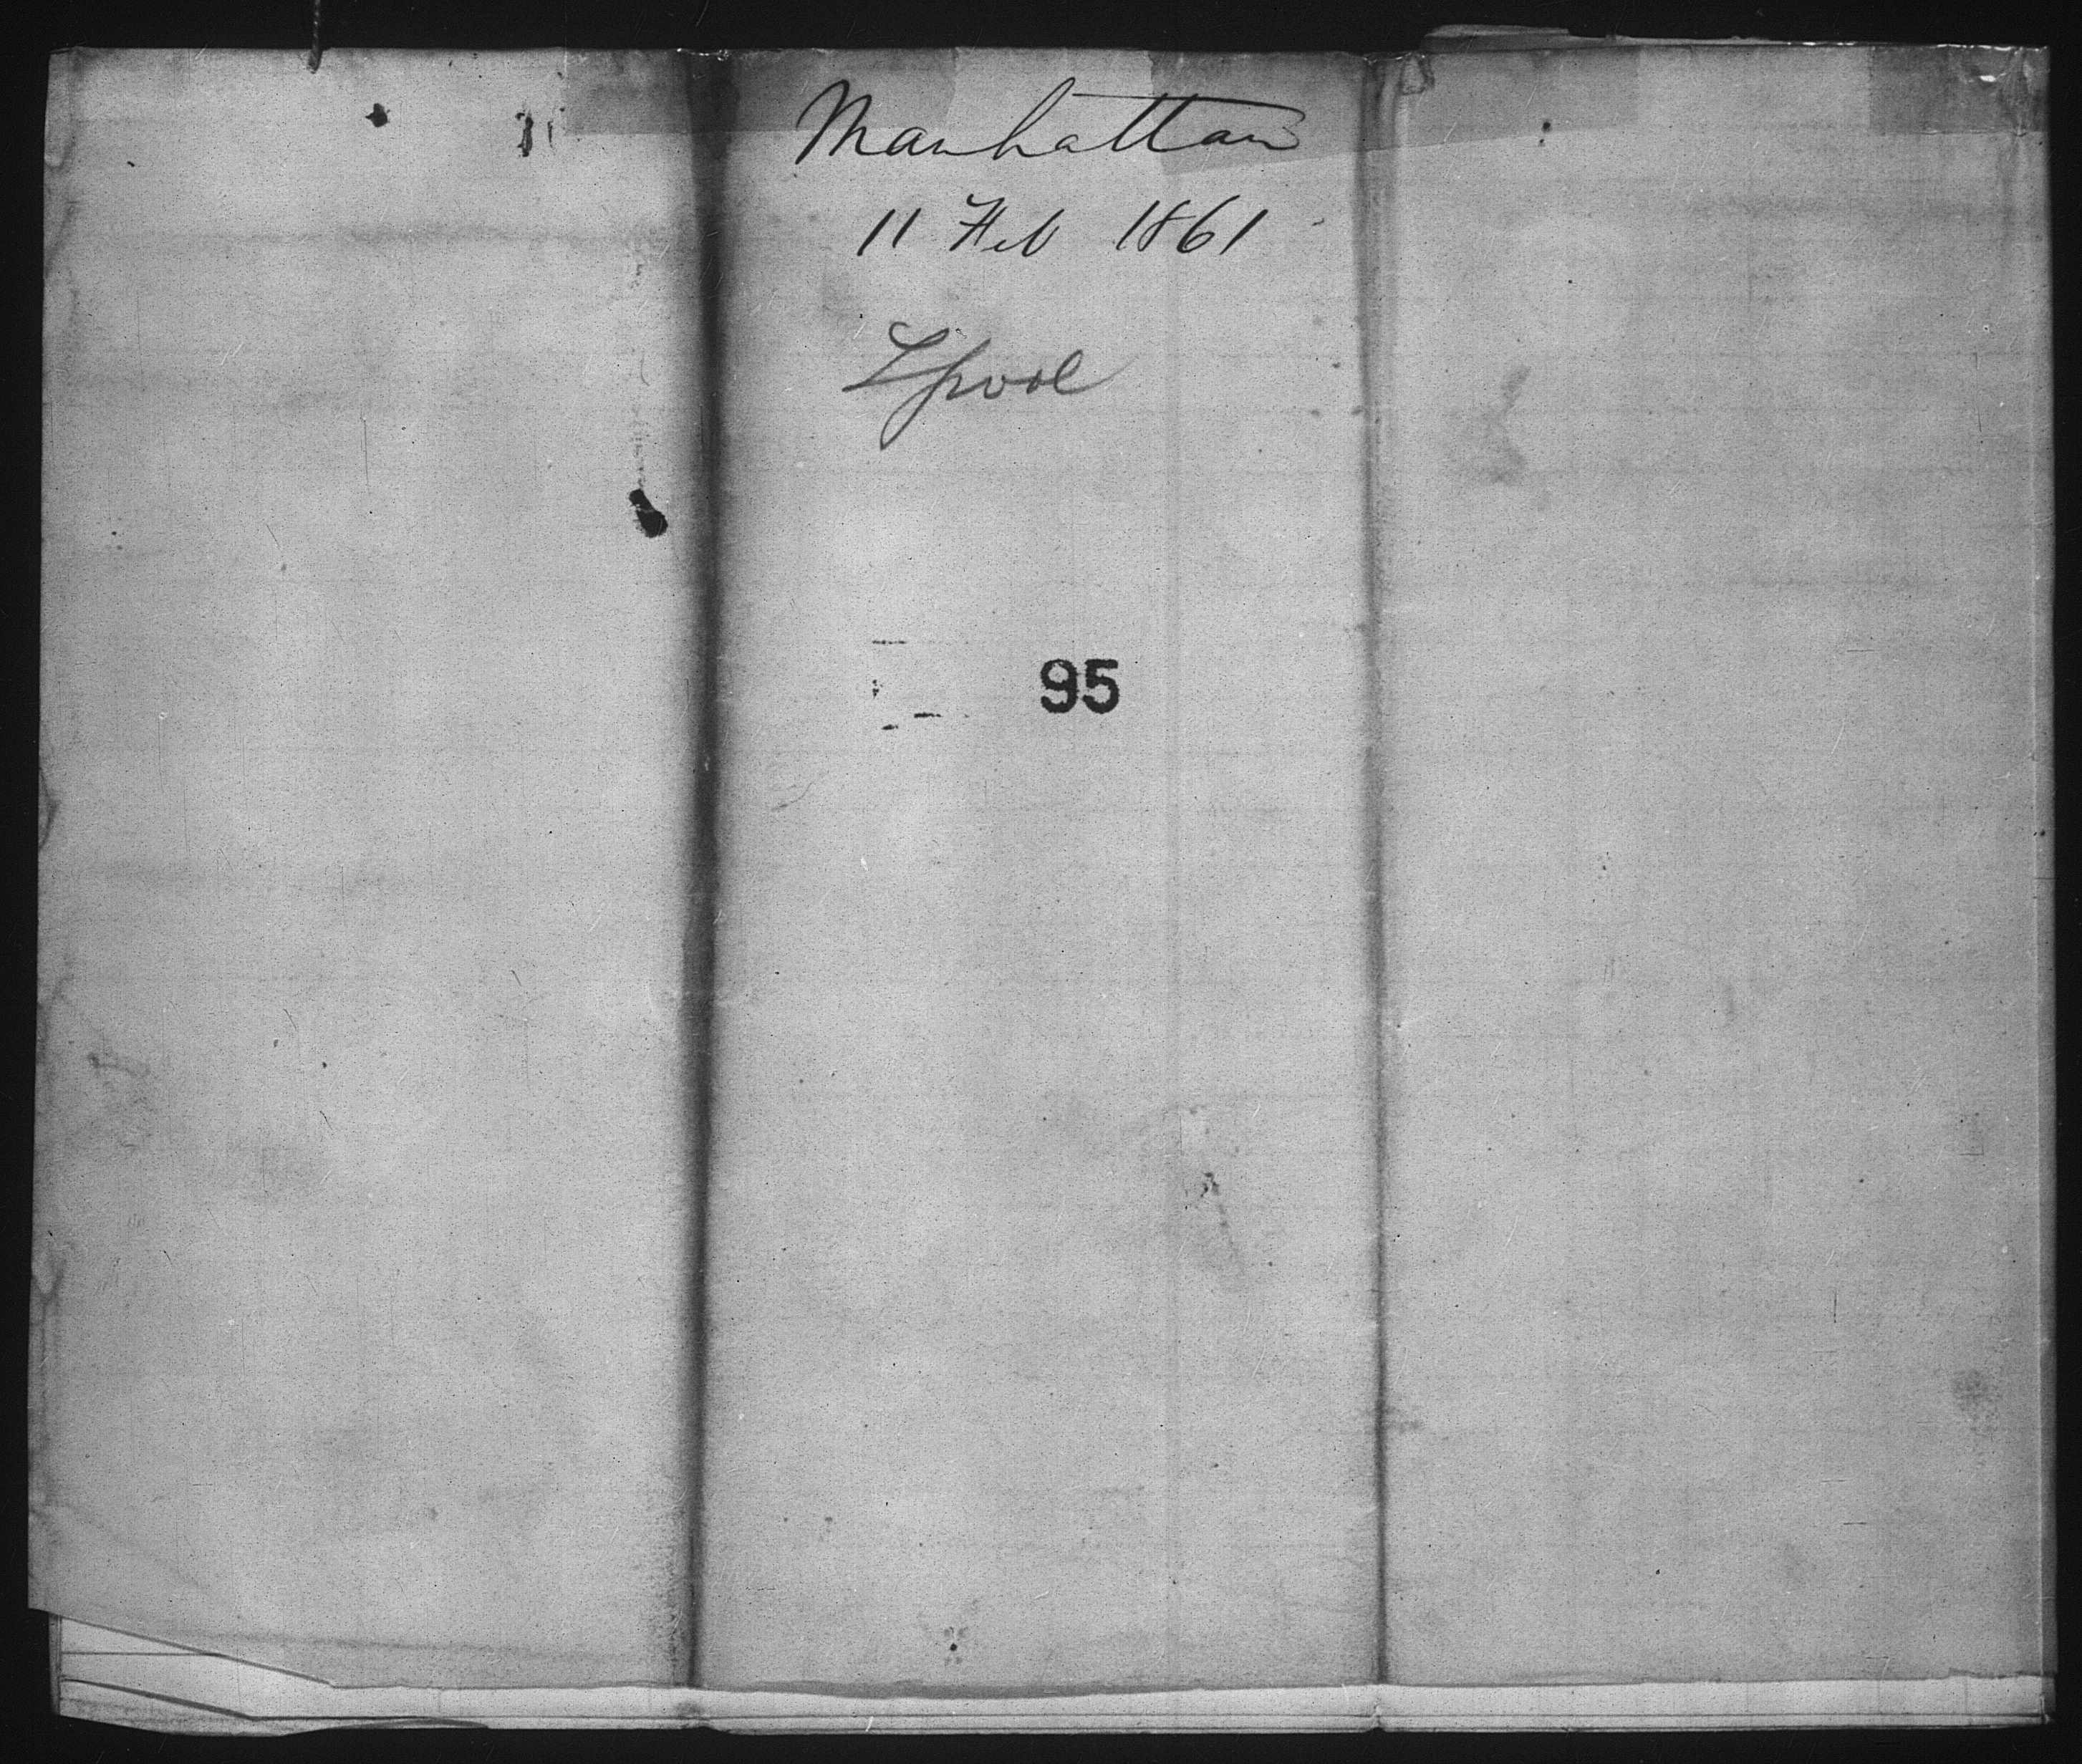 Manhattan
11 Feb 1861
Lpool
95